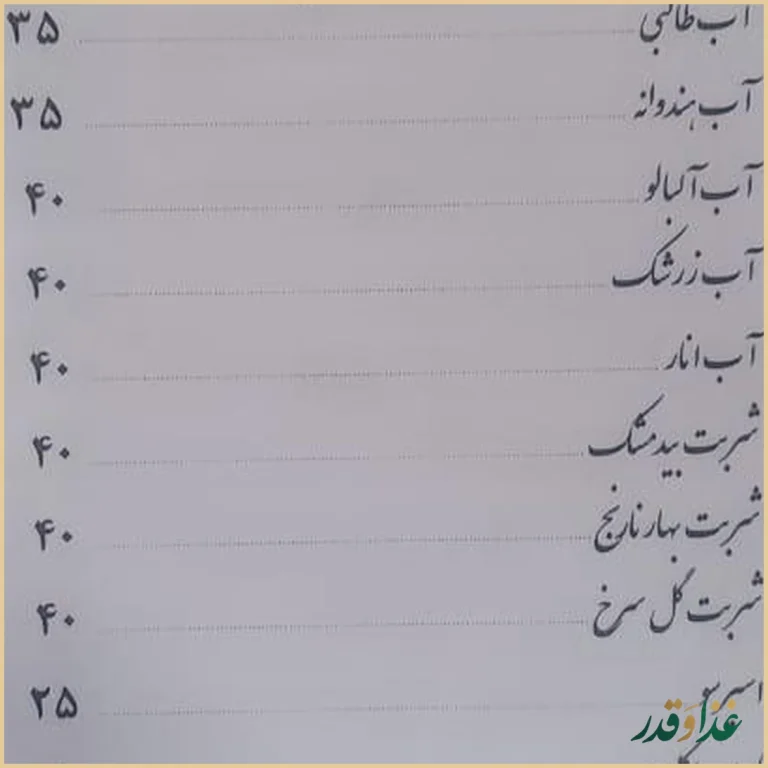 آب طالبی ۳۵
آب هندوانه ۳۵
آب آلبالو ۴۰
آب زرشک ۴۰
آب انار ۴۰
شربت بیدمشک ۴۰
شربت بهارنارنج ۴۰
شربت گل سرخ ۴۰
اسپرسو ۲۵
غذا و قدر